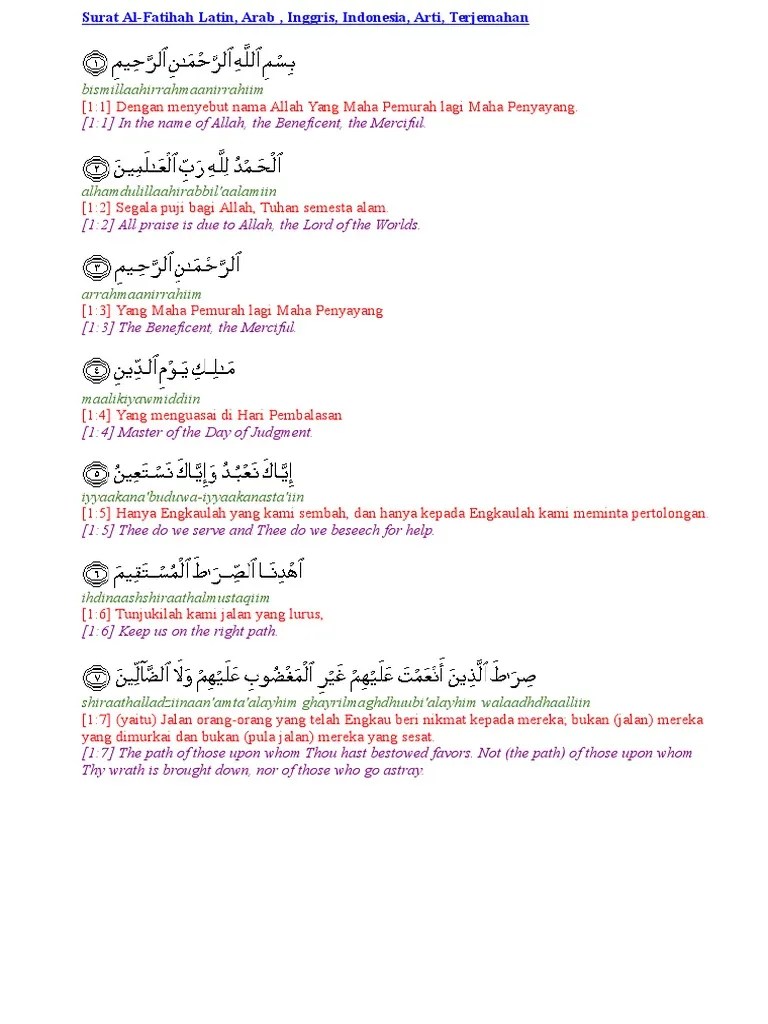 Surat Al-Fatihah Latin, Arab , Inggris, Indonesia, Arti, Terjemahan
بِسْمِ ٱللَّهِ ٱلرَّحْمَـٰنِ ٱلرَّحِيمِ ١
bismillaahirrahmaanirrahiim
[1:1] Dengan menyebut nama Allah Yang Maha Pemurah lagi Maha Penyayang.
[1:1] In the name of Allah, the Beneficent, the Merciful.
ٱلْحَمْدُ لِلَّهِ رَبِّ ٱلْعَـٰلَمِينَ ٢
alhamdulillaahirabbil'aalamiin
[1:2] Segala puji bagi Allah, Tuhan semesta alam.
[1:2] All praise is due to Allah, the Lord of the Worlds.
ٱلرَّحْمَـٰنِ ٱلرَّحِيمِ ٣
arrahmaanirrahiim
[1:3] Yang Maha Pemurah lagi Maha Penyayang
[1:3] The Beneficent, the Merciful.
مَـٰلِكِ يَوْمِ ٱلدِّينِ ٤
maalikiyawmiddiin
[1:4] Yang menguasai di Hari Pembalasan
[1:4] Master of the Day of Judgment.
إِيَّاكَ نَعْبُدُ وَإِيَّاكَ نَسْتَعِينُ ٥
iyyaakana'buduwa-iyyaakanasta'iin
[1:5] Hanya Engkaulah yang kami sembah, dan hanya kepada Engkaulah kami meminta pertolongan.
[1:5] Thee do we serve and Thee do we beseech for help.
ٱهْدِنَا ٱلصِّرَٰطَ ٱلْمُسْتَقِيمَ ٦
ihdinaashshiraathalmustaqiim
[1:6] Tunjukilah kami jalan yang lurus,
[1:6] Keep us on the right path.
صِرَٰطَ ٱلَّذِينَ أَنْعَمْتَ عَلَيْهِمْ غَيْرِ ٱلْمَغْضُوبِ عَلَيْهِمْ وَلَا ٱلضَّآلِّينَ ٧
shiraathalladziinaan'amta'alayhim ghayrilmaghdhuubi'alayhim walaadhdhaalliin
[1:7] (yaitu) Jalan orang-orang yang telah Engkau beri nikmat kepada mereka; bukan (jalan) mereka
yang dimurkai dan bukan (pula jalan) mereka yang sesat.
[1:7] The path of those upon whom Thou hast bestowed favors. Not (the path) of those upon whom
Thy wrath is brought down, nor of those who go astray.